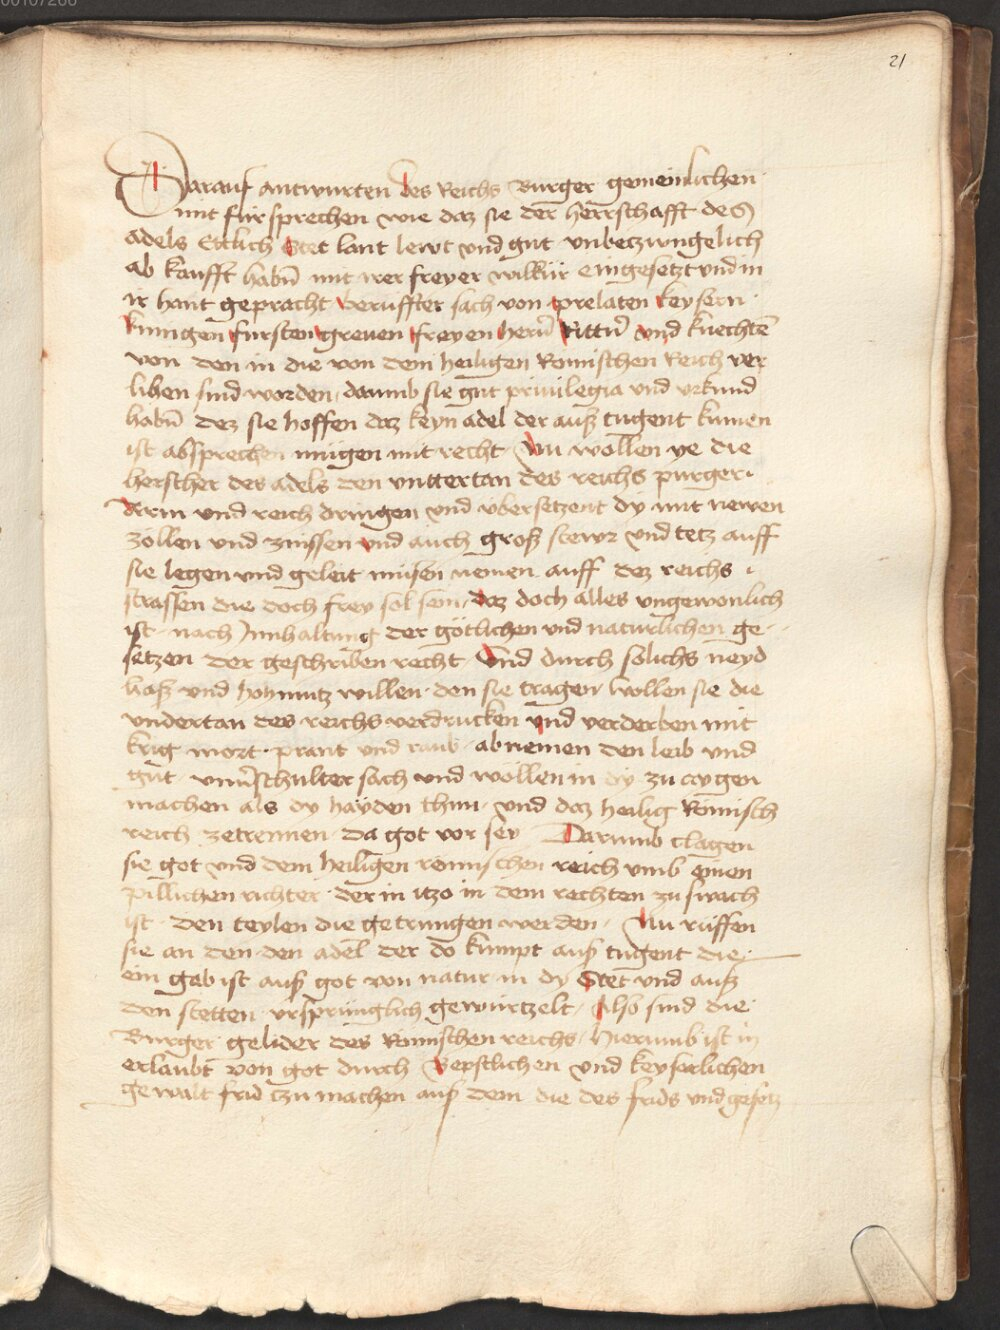 00107266
21
Darauf antwurten des Reichs Burger gemeinlichen
mit für sprechen wie daz sie der herrschafft des
adels Ettlich Stet lant lewt vnd gut vnbeczwngelich
ab kaufft habn̄ mit irer freyer wilkür eingesetzt vnd in
ir hant gepracht beruffter sach von prelaten keysern
kunigen fursten greuen freyen hern̄ Rittr̄ vnd knechtē
von den in die von dem heiligen Romischen Reich ver
liben sind worden, darumb sie gut priuilegia vnd vrkund
habn̄ dez sie hoffen daz keyn adel der auß tugent kumen
ist absprechen mügen mit recht Nu wollen ye die
herscher des adels den vnttertan des reichs purger
Arm vnd reich dringen vnd übersetzent dy mit newen
zöllen vnd zinssen vnd auch groß stewr vnd tetz auff
sie legen vnd geleit müsen nemen auff dez reichs
strassen die doch frey sol sein, daz doch alles vngewonlich
ist nach Innhaltung der götlichen vnd naturlichen ge-
setzen der geschriben recht Vnd durch solichs neyd
haß vnd hohmutz willen den sie tragen wollen sie die
vndertan des reichs verdrucken vnd verderben mit
krig mort prant vnd raub abnemen den leib vnd
gut vnuerschulter sach vnd wöllen in dy zu aygen
machen als dy hayden thun vnd daz heilig Romisch
reich zetrennen da got vor sey Darumb clagen
sie got vnd dem heiligen römischen reich vmb einen
pillichen richter der in itzo in dem rechten zu swach
ist den teylen die getrungen werden, Nu rüffen
sie an den den adel der do kumpt auß tugent die
ein gab ist auß got von natur in dy Stet vnd auß
den stetten vrsprünglich gewürtzelt, Also sind die
Burger gelider des Römischen reichs, hierumb ist in
erlaubt von got durch Bepstlichen vnd keyserlichen
gewalt frid czu machen auß dem die des frids vnd gesetz